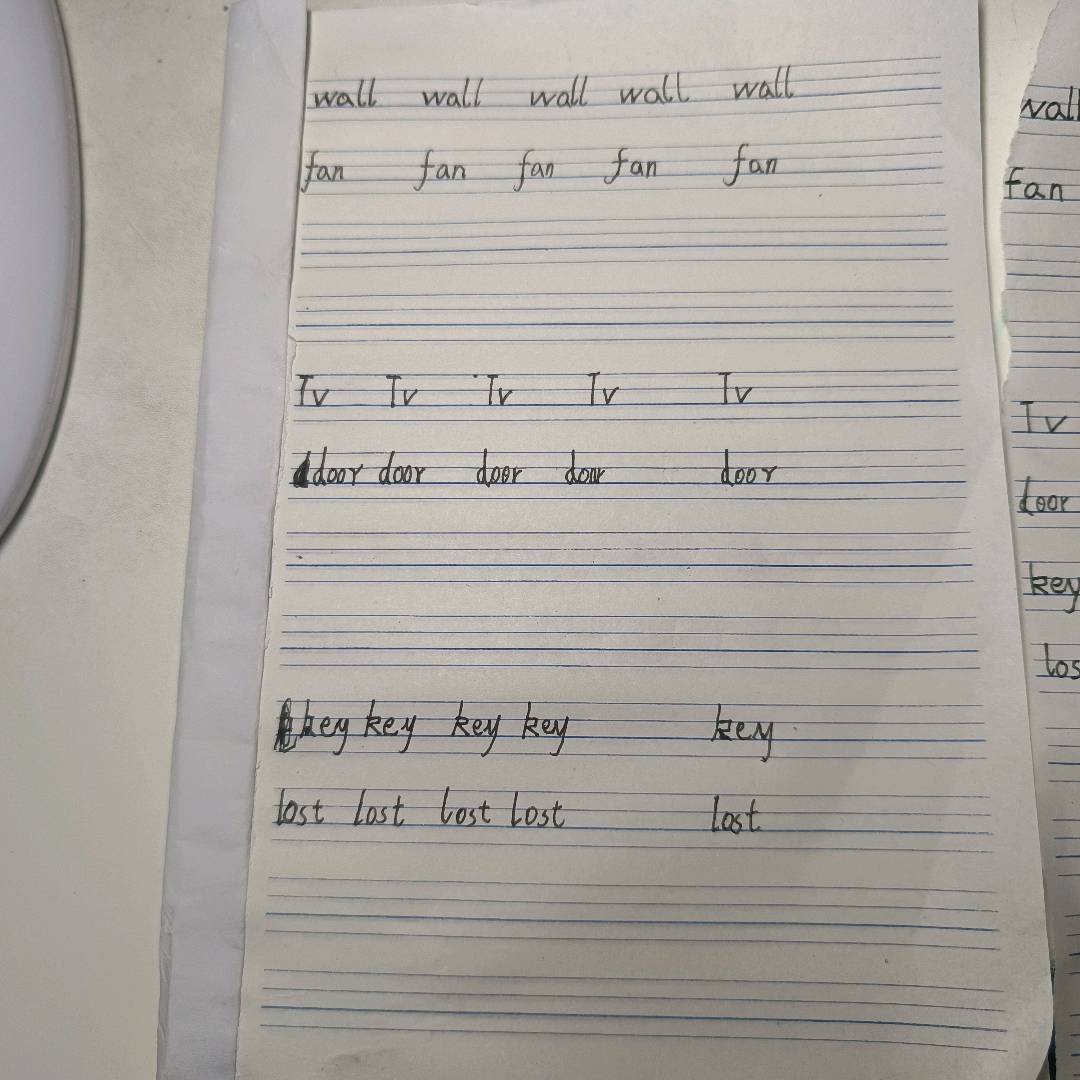 wall wall wall wall wall
fan fan fan fan fan
Tv Tv Tv Tv Tv
door door door door door
key key key key key
lost lost lost lost lost
wall
fan
Tv
door
key
los